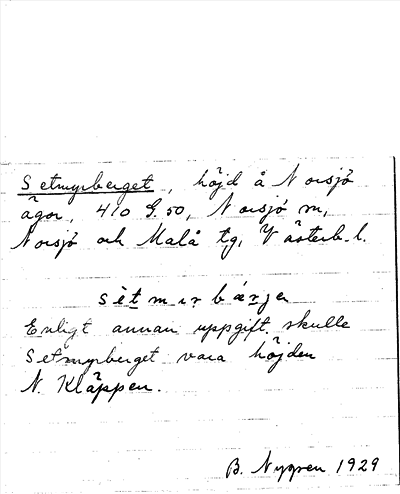 Setmyrberget, höjd å Norsjö
ägor, 410 G. 50, Norsjö sn,
Norsjö och Malå tg, Västerb. l.
sètmırbárjen
Enligt annan uppgift skulle
Setmyrberget vara höjden
N. Kläppen.
B. Nygren 1929